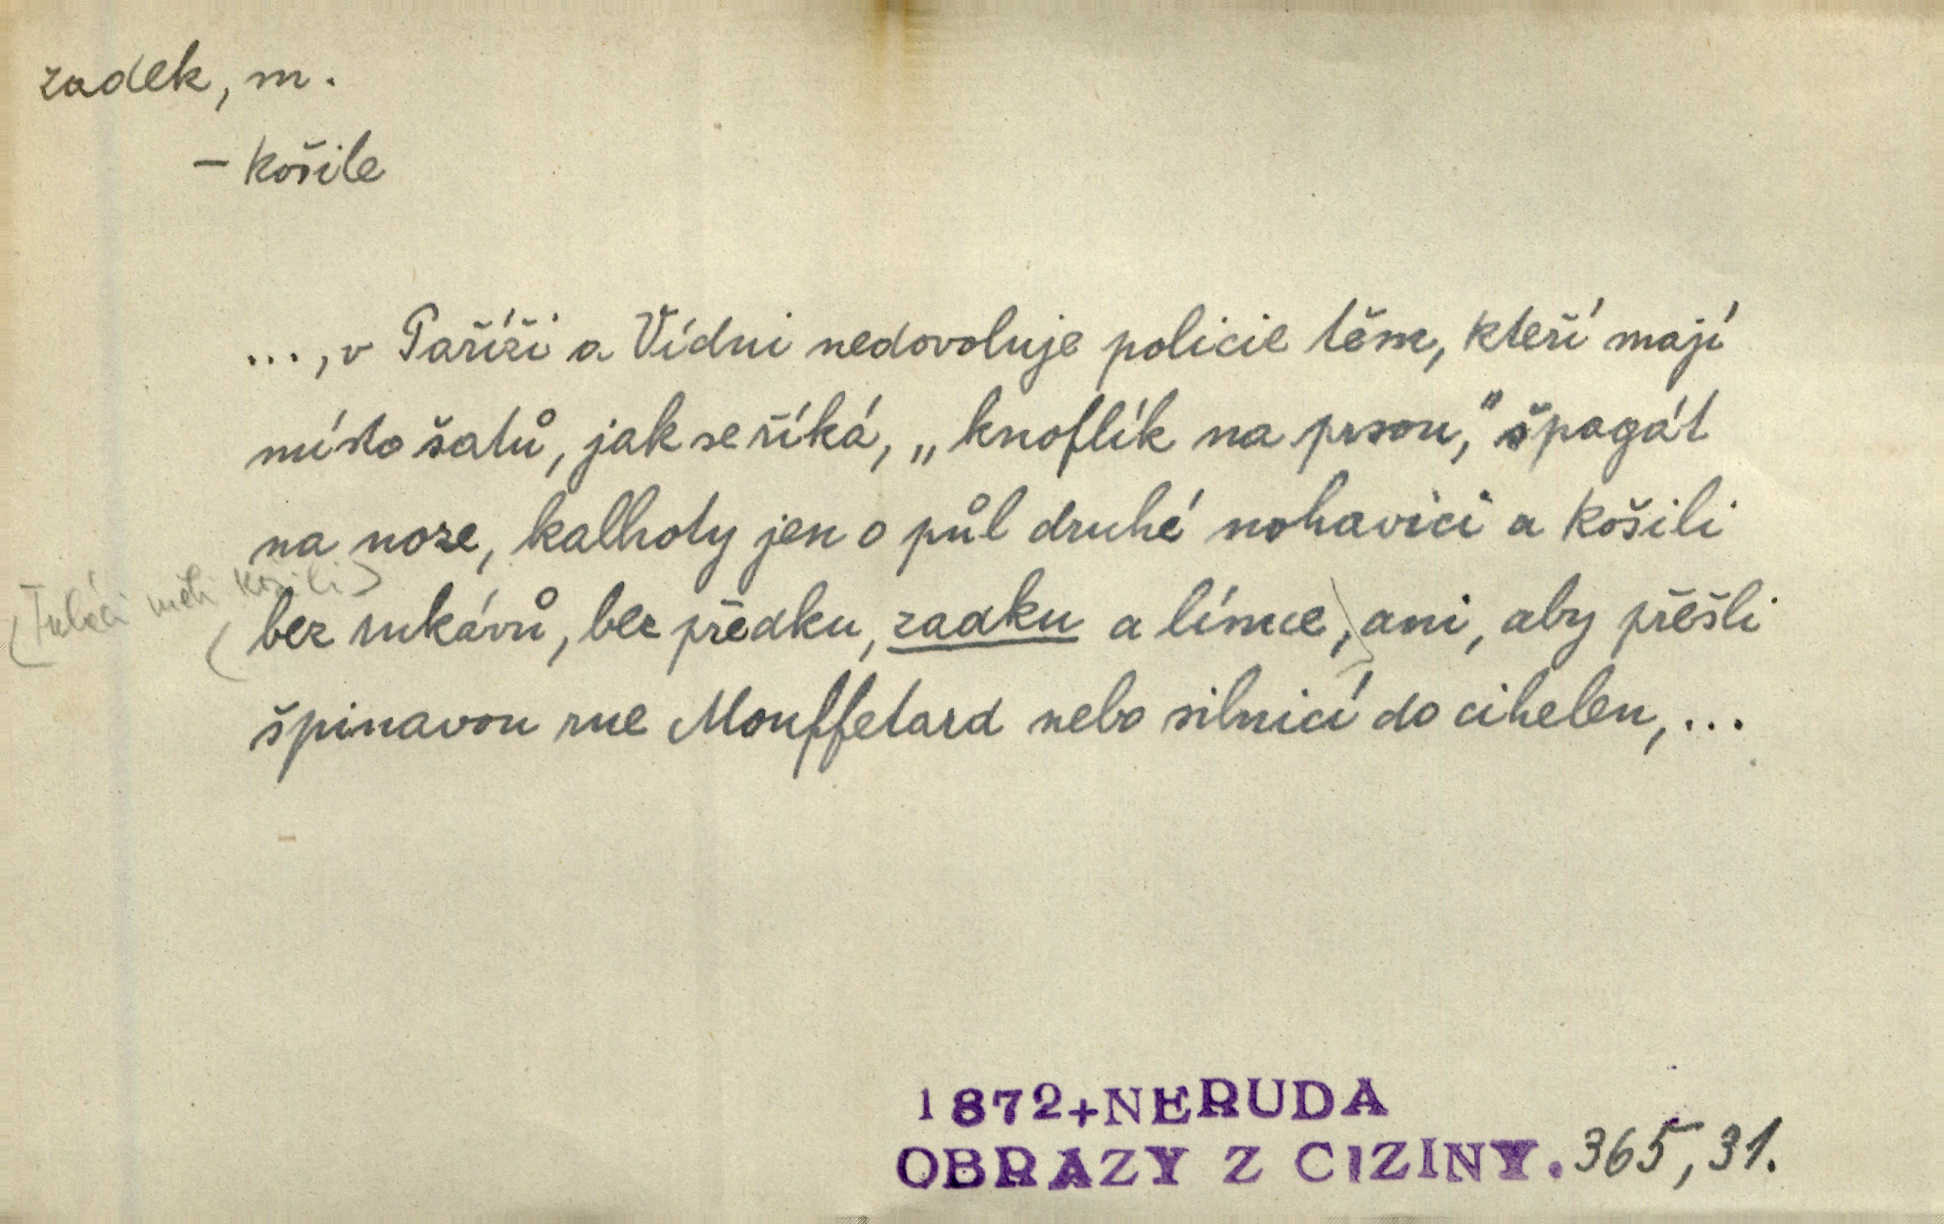 zadek, m.
– košile
..., v Paříži a Vídni nedovoluje policie těm, kteří mají
místo šatů, jak se říká, „knoflík na prsou,“ špagát
na noze, kalhoty jen o půl druhé nohavici a košili
(Tuláci měli košili)
(bez rukávů, bez předku, zadku a límce,) ani, aby přešli
špinavou rue Mouffetard nebo silnicí do cihelen, ...
1872+NERUDA
OBRAZY Z CIZINY. 365, 31.